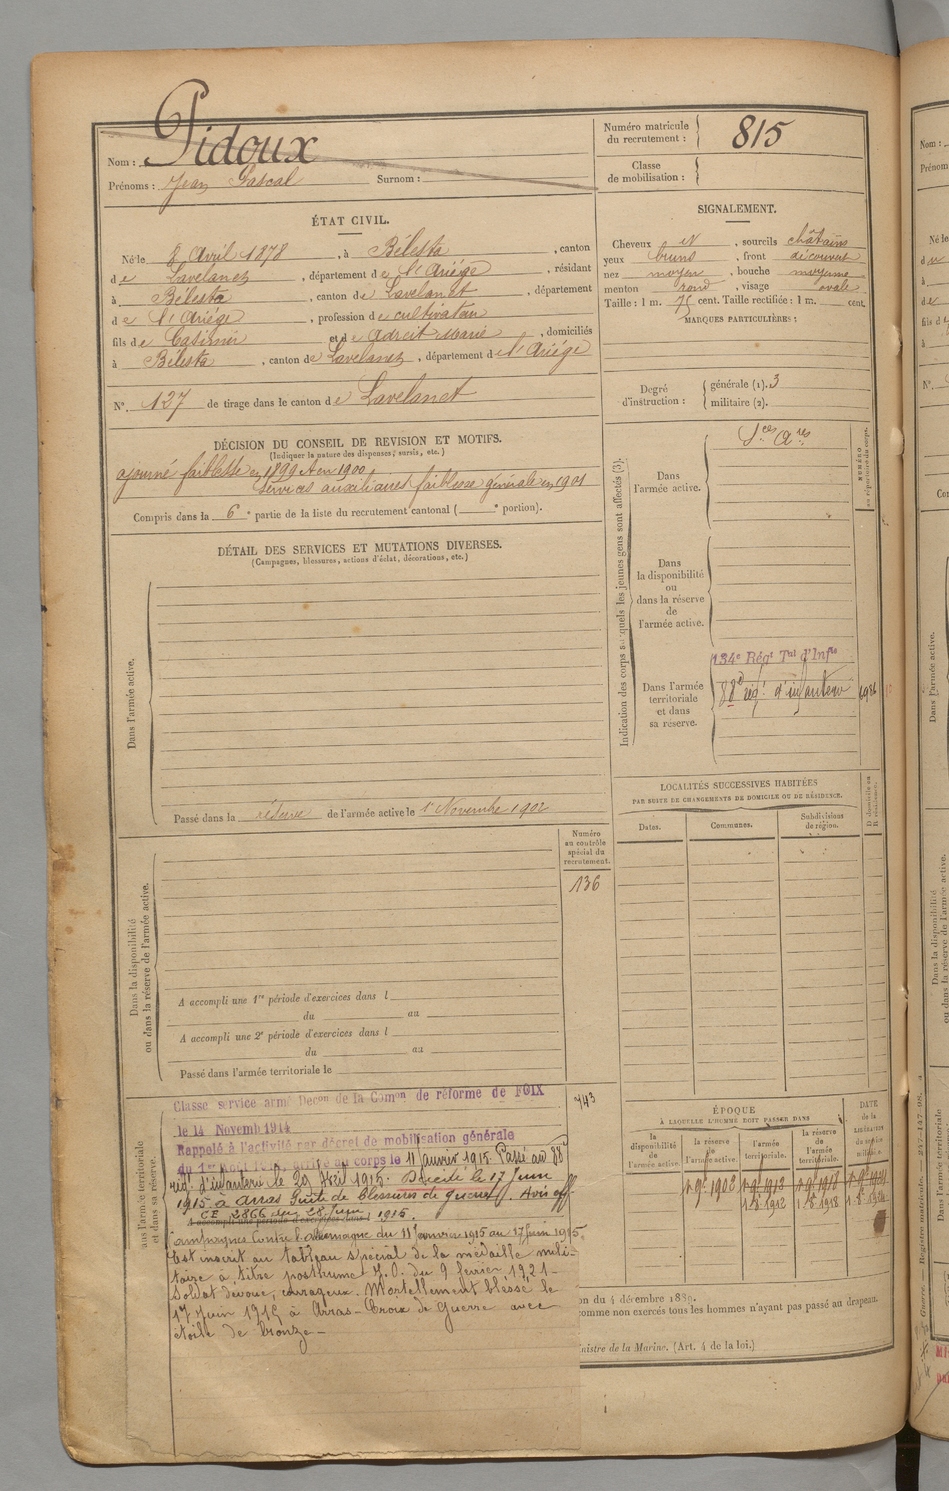 Nom : Pidoux
Prénoms : Jean Pascal Surnom :
Numéro matricule du recrutement : 815
Classe de mobilisation :
ÉTAT CIVIL.
Né le 8 Avril 1878, à Bélesta, canton
de Lavelanet, département de l'Ariège, résidant
à Bélesta, canton de Lavelanet, département
de l'Ariège, profession de cultivateur
fils de Casimir et de Adroit Marie, domiciliés
à Bélesta, canton de Lavelanet, département de l'Ariège
N° 127 de tirage dans le canton de Lavelanet
SIGNALEMENT.
Cheveux et, sourcils châtains
yeux bruns, front découvert
nez moyen, bouche moyenne
menton rond, visage ovale
Taille : 1 m. 75 cent. Taille rectifiée : 1 m. cent.
MARQUES PARTICULIÈRES :
Degré d'instruction : générale (1). 3
militaire (2).
DÉCISION DU CONSEIL DE REVISION ET MOTIFS.
(Indiquer la nature des dispenses, sursis, etc.)
ajourné faiblesse en 1899 et en 1900
Services auxiliaires faiblesse générale en 1901
Compris dans la 6e partie de la liste du recrutement cantonal ( e portion).
DÉTAIL DES SERVICES ET MUTATIONS DIVERSES.
(Campagnes, blessures, actions d'éclat, décorations, etc.)
Dans l'armée active.
Passé dans la réserve de l'armée active le 1 Novembre 1902
Indication des corps auxquels les jeunes gens sont affectés (3).
Dans l'armée active.
Sces Ares
Dans la disponibilité ou dans la réserve de l'armée active.
Dans l'armée territoriale et dans sa réserve.
134e Régt Tal d'Infie
88e rég. d'infanterie
NUMÉRO au répertoire du corps.
LOCALITÉS SUCCESSIVES HABITÉES
PAR SUITE DE CHANGEMENTS DE DOMICILE OU DE RÉSIDENCE.
Dates.
Communes.
Subdivisions de région.
D. domicile ou R. résidence.
Numéro au contrôle spécial du recrutement.
136
Dans la disponibilité ou dans la réserve de l'armée active.
A accompli une 1re période d'exercices dans l
du au
A accompli une 2e période d'exercices dans l
du au
Passé dans l'armée territoriale le
743
Classé service armé Décon de la Comon de réforme de FOIX
le 14 Novemb 1914
Rappelé à l'activité par décret de mobilisation générale
du 1er Août 1914, arrivé au corps le 11 Janvier 1915. Passé au 88e
rég. d'infanterie le 29 Avril 1915. Décédé le 17 Juin
1915 à Arras Suite de blessures de guerre. Avis off
CE 2866 du 28 Juin 1915.
A accompli une période d'exercices dans l
Campagnes Contre l'Allemagne du 11 Janvier 1915 au 17 Juin 1915.
Est inscrit au tableau spécial de la médaille mili-
taire à titre posthume J.O. du 9 février 1921-
Soldat dévoué, courageux. Mortellement blessé le
17 Juin 1915 à Arras - Croix de Guerre avec
étoile de bronze -
ans l'armée territoriale et dans sa réserve.
ÉPOQUE
À LAQUELLE L'HOMME DOIT PASSER DANS
la disponibilité de l'armée active.
la réserve de l'armée active.
l'armée territoriale.
la réserve de l'armée territoriale.
DATE de la LIBÉRATION du service militaire.
on du 4 décembre 1889.
comme non exercés tous les hommes n'ayant pas passé au drapeau.
nistre de la Marine. (Art. 4 de la loi.)